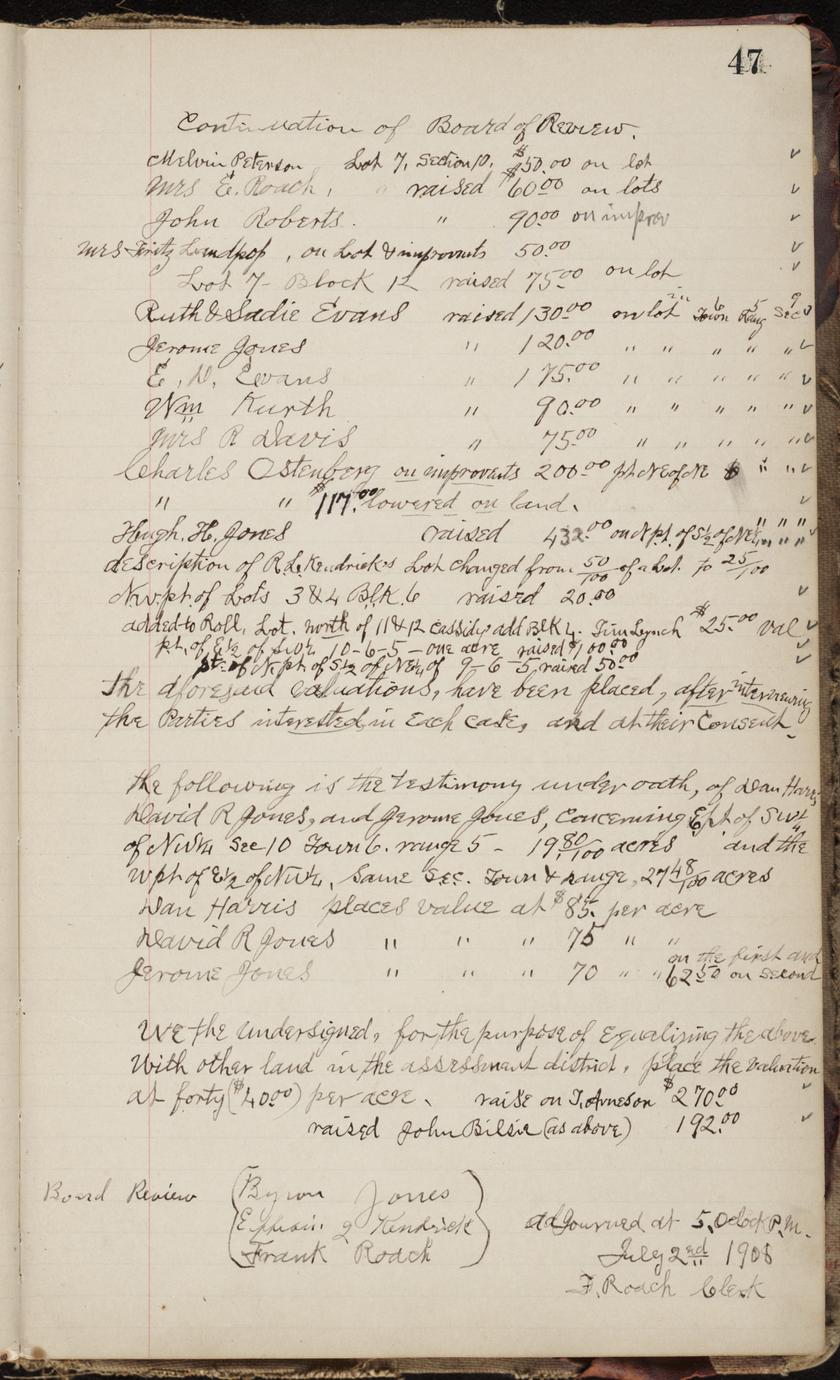 47
Continuation of Board of Review.
Melvin Peterson Lot 7, Section 10, $50.00 on lot ✓
Mrs E. Roach, raised $60.00 on lots ✓
John Roberts. " 90.00 on improv ✓
Mrs Fritz , on Lot & improvants 50.00 ✓
Lot 7 - Block 12 raised 75.00 on lot ✓
Ruth & Sadie Evans raised 130.00 on lot in Town 6 Rang 5 Sec 9 ✓
Jerome Jones " 120.00 " " " " " ✓
E. D. Evans " 175.00 " " " " " ✓
Wm Kurth " 90.00 " " " " " ✓
Mrs R Davis " 75.00 " " " " " ✓
Charles Ostenberg on improvants 200.00 pt NE of NE " " " ✓
" " $117.00 lowered on land. ✓
Hugh. H. Jones raised 432.00 on N pt. of S½ of NE¼ " " " ✓
description of R. L. Kendricks Lot changed from 50/100 of a Lot. to 25/100
N.w. pt. of Lots 3 & 4 Blk. 6 raised 20.00 ✓
added to Roll, Lot. north of 11 & 12 Cassidy add Blk 4. Tim Lynch $25.00 val ✓
pt. of E½ of S.W¼ 10-6-5 - one acre raised $100.00 ✓
pt. of N. pt. of S½ of NE¼ of 9-6-5 raised 50.00 ✓
the aforesaid valuations, have been placed, after interviewing
the Parties interested in each case, and at their Consent.
the following is the testimony under oath, of Dan Harris,
David R Jones, and Jerome Jones, Concerning E pt of Sw¼
of Nw¼ Sec 10 Town 6. range 5 - 19 80/100 acres and the
w pt of E½ of Nw¼, Same Sec. Town & range, 27 48/100 acres
Dan Harris places value at $85. per acre
David R Jones " " " 75 " "
Jerome Jones " " " 70 " " on the first and
62 50 on second
We the undersigned, for the purpose of Equalizing the above
With other land in the assessment district, place the valuation
at forty ($40.00) per acre. raise on T. Arneson $270.00 ✓
raised John Bilsie (as above) 192.00 ✓
Board Review (Byron Jones)
(Ephraim J Kendrick) adjourned at 5, Oclock P.M.
(Frank Roach) July 2nd 1908
F. Roach Clerk